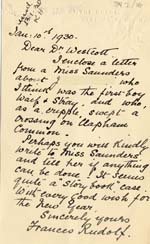 Jan: 10th 1930.
Dear Dr Westcott
I enclose a letter
from a Miss Saunders
about who
I think was the first boy
Waif & Stray, and who,
as a cripple, swept a
crossing on Clapham
Common.
Perhaps you will kindly
write to Miss Saunders
and tell her if anything
can be done. It seems
quite a "story book" case.
With every good wish for
the New Year
Sincerely yours
Frances Rudolf.